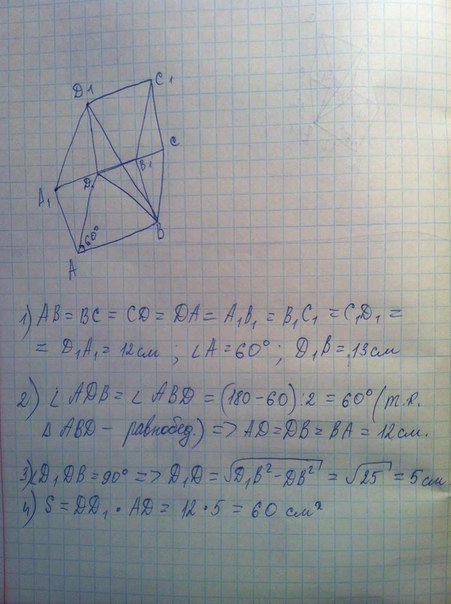 D1
C1
C
B1
D
A1
60°
B
A
1) AB = BC = CD = DA = A₁B₁ = B₁C₁ = C₁D₁ =
= D₁A₁ = 12 см ; ∠A = 60° ; D₁B = 13 см
2) ∠ADB = ∠ABD = (180-60) : 2 = 60° (т.к.
△ABD - равнобед.) => AD = DB = BA = 12 см.
3) ∠D₁DB = 90° => D₁D = √D₁B² - DB² = √25 = 5 см
4) S = DD₁ · AD = 12 · 5 = 60 см²